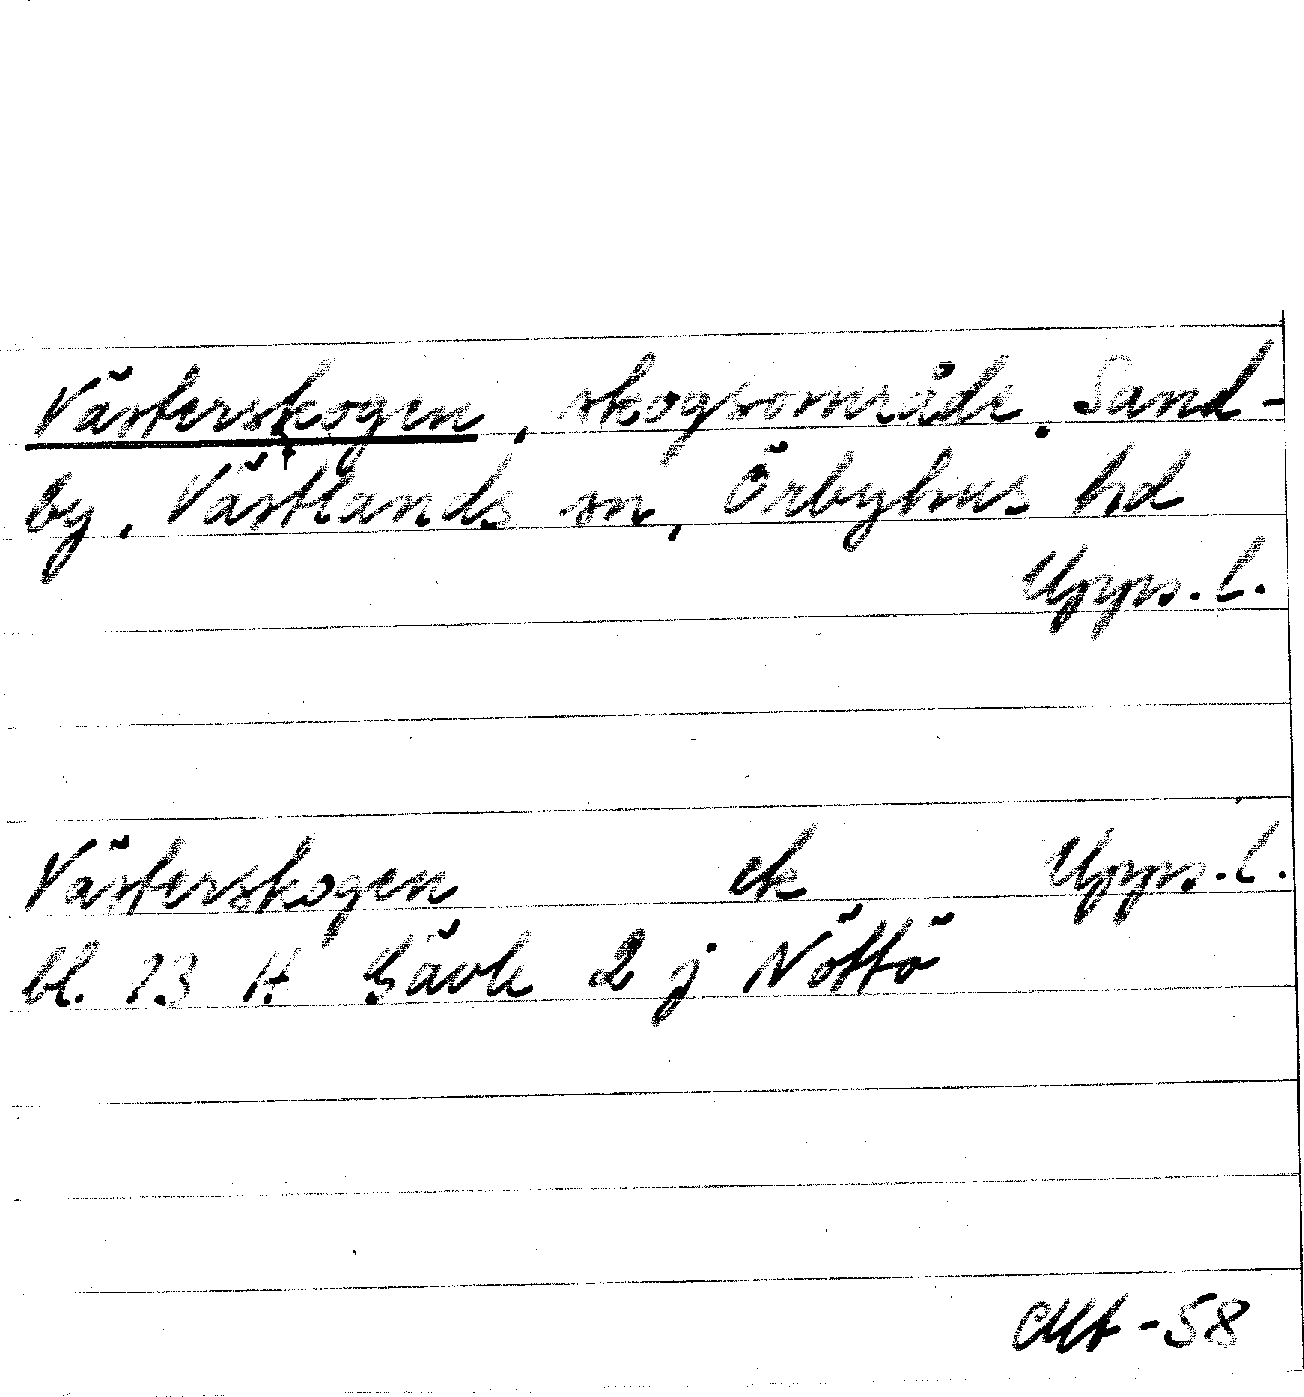 Västerskogen, skogsområde, Sand-
by, Västlands sn, Örbyhus hd
Upps. l.
Västerskogen ek Upps. l.
bl. 13 H Gävle 2 j Nöttö
-58